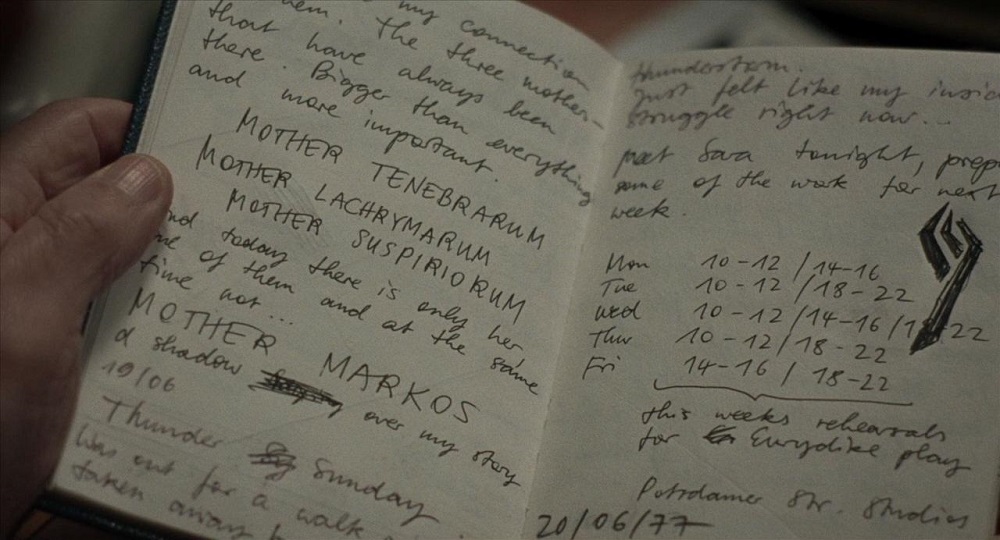 my connection
them. The three mother-
that have always been
there. Bigger than everything
and more important.
MOTHER TENEBRARUM
MOTHER LACHRYMARUM
MOTHER SUSPIRIORUM
and today there is only her
one of them and at the same
time not...
MOTHER MARKOS
a shadow over my story
19/06
Thunder Sunday
Was out for a walk
taken away
thunderstorm.
Just felt like my insid
struggle right now...
meet Sara tonight, prep
some of the work for next
week.
Mon 10-12 / 14-16
Tue 10-12 / 18-22
Wed 10-12 / 14-16 / 1 -22
Thur 10-12 / 18-22
Fri 14-16 / 18-22
this weeks rehearsals
for Eurydike play
Potsdamer Str. Studios
20/06/77